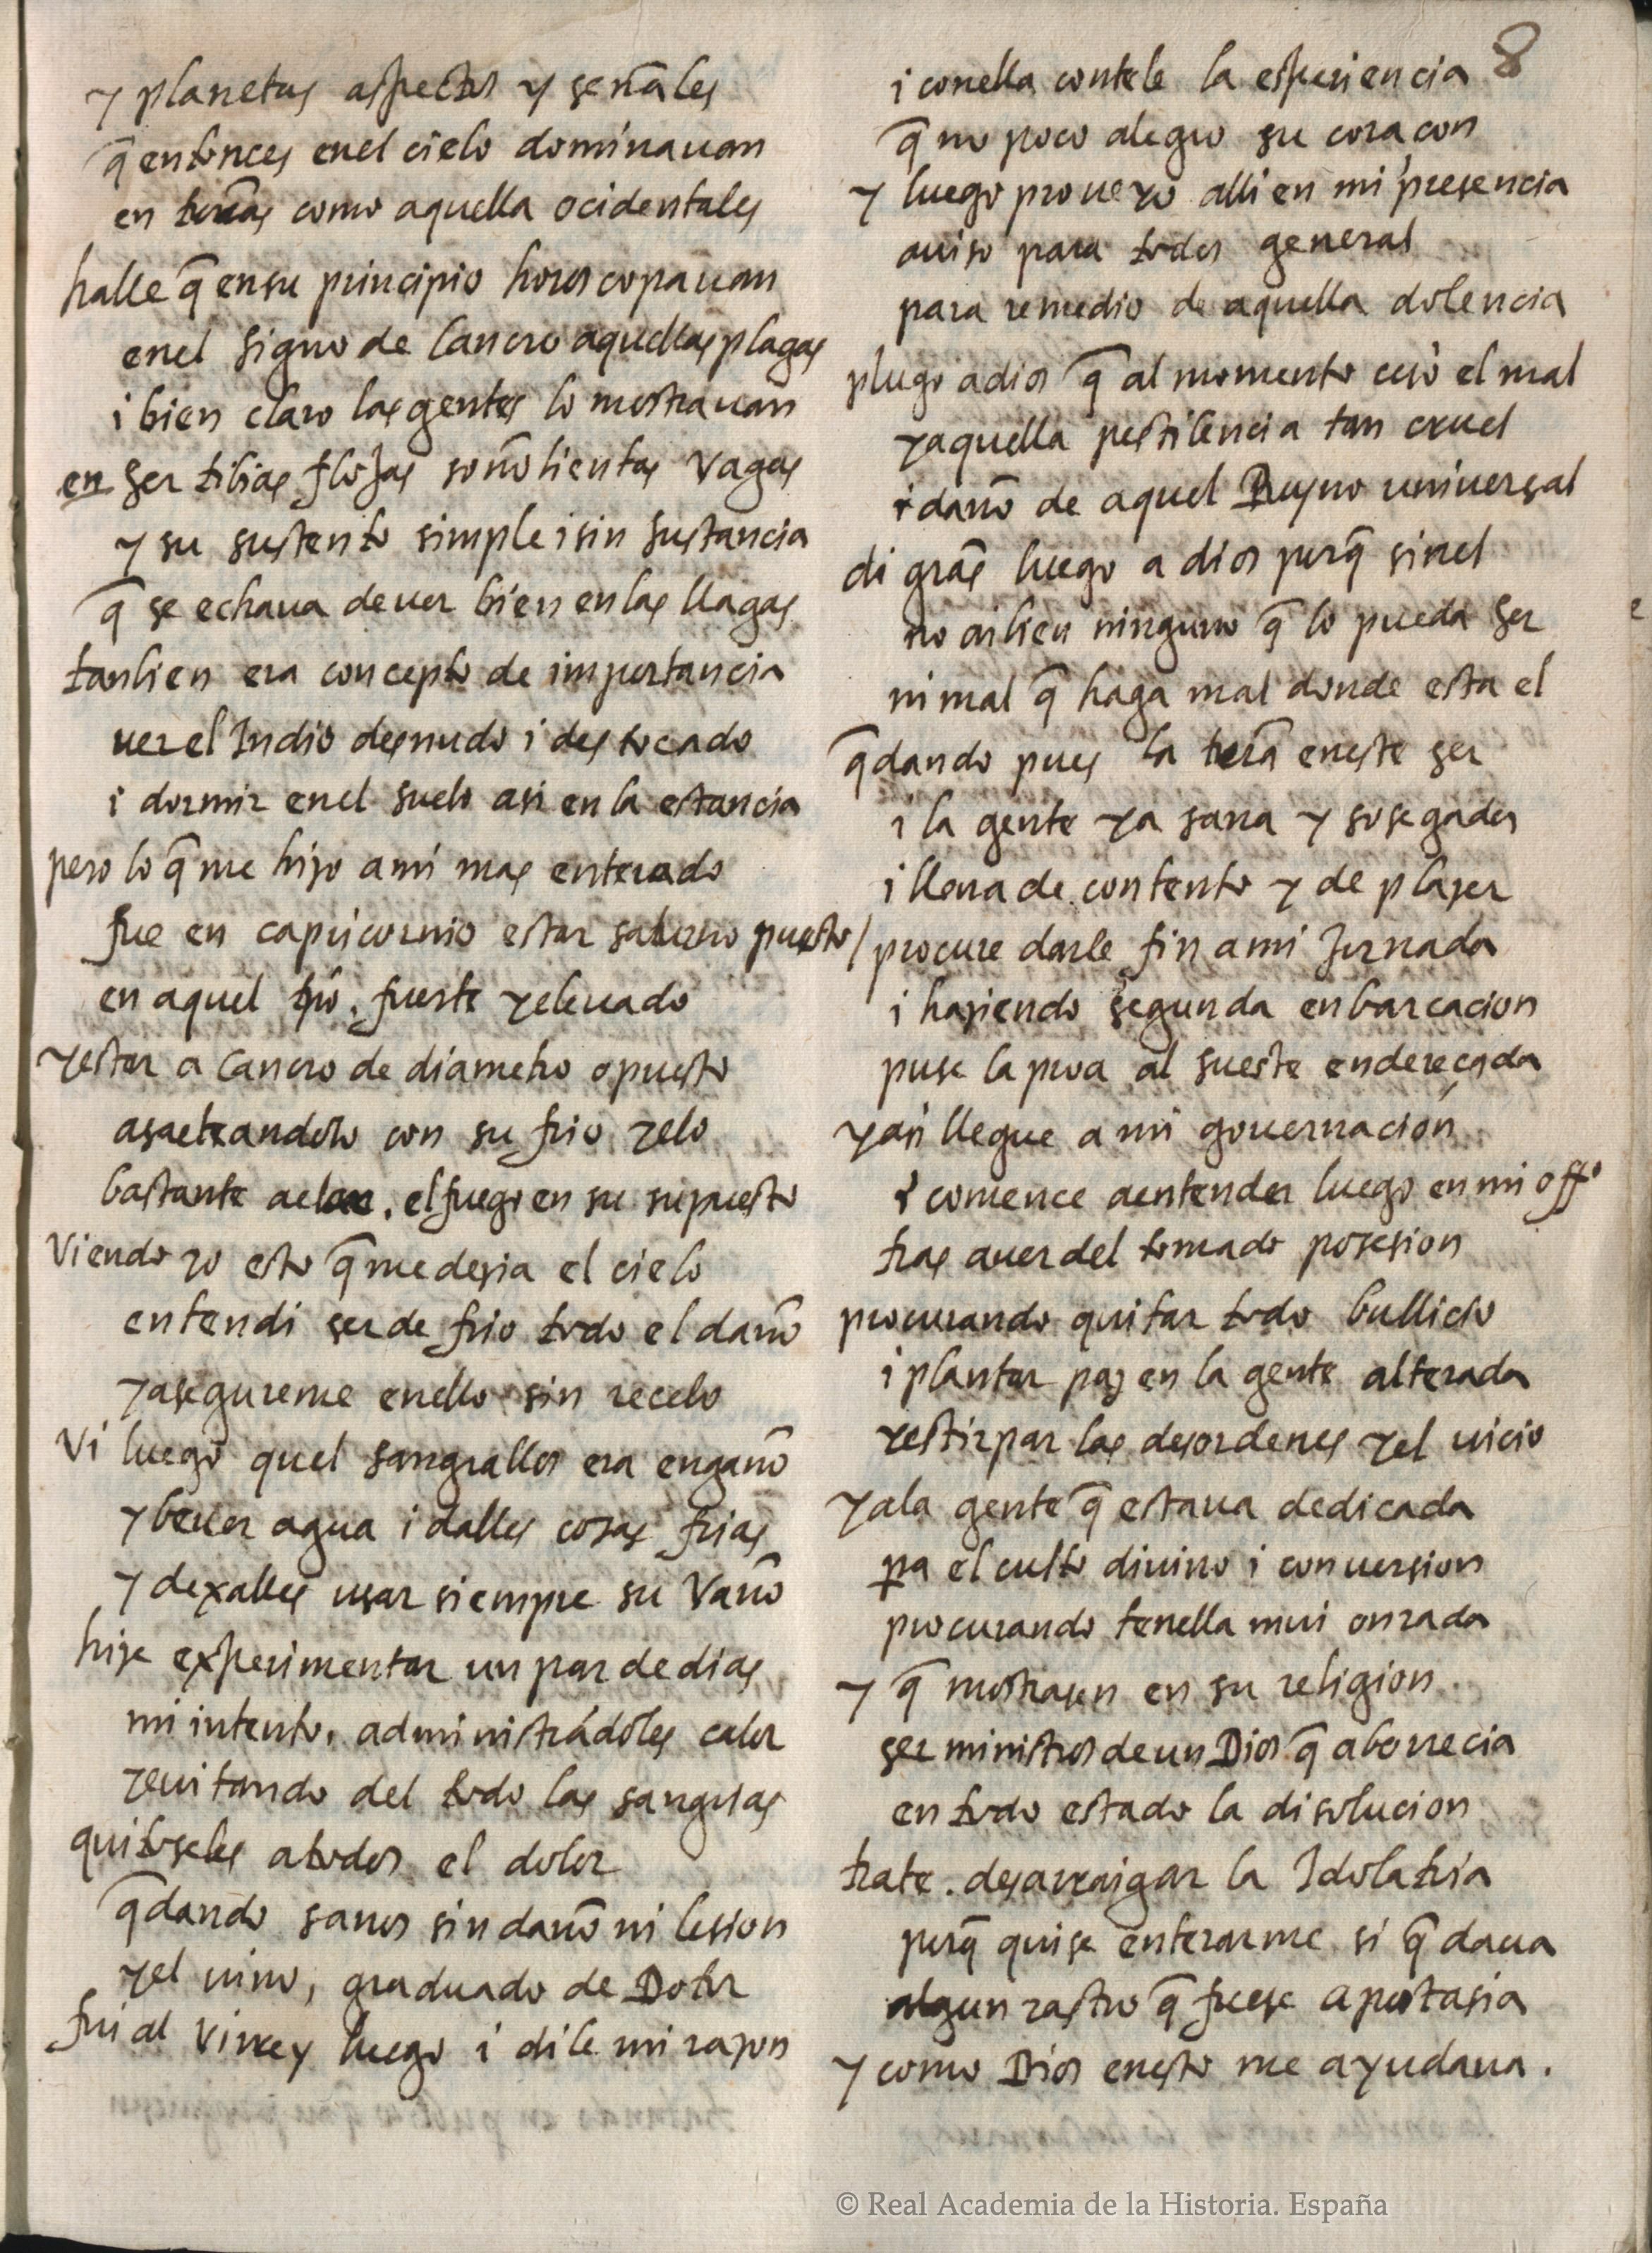 y planetas aspectos y señales
q̃ entonces enel cielo dominauan
en tierras como aquella ocidentales
halle q̃ ensu principio horoscopauan
enel signo de Cancro aquellas plagas
i bien claro las gentes lo mostrauan
en ser tibias flojas soñolientas vagas
y su sustento simple i sin sustancia
q̃ se echaua de uer bien en las llagas
tanbien era concepto de importancia
uer el Indio desnudo i destocado
i dormir enel suelo asi en la estancia
pero lo q̃ me hizo a mi mas enterado
fue en capricornio estar saturno puesto /
en aquel tpō. fuerte y eleuado
y estar a Cancro de diametro opuesto
asaeteandolo con su frio yelo
bastante a elar. el fuego en su supuesto
Viendo yo esto q̃ me desia el cielo
entendi ser de frio todo el daño
y asegureme enello sin recelo
Vi luego quel sangrallos era engaño
y beuer agua i dalles cosas frias
y dexalles usar siempre su Vaño
hize experimentar un par de dias
mi intento, administrádoles calor
y euitando del todo las sangrias
quitoseles a todos el dolor
q̃dando sanos sin daño ni lesion
y el uino, graduado de Dotor
fui al Virrey luego i dile mi razon
8
i conella contele la esperiencia
q̃ no poco alegro su coracon
y luego proueyo alli en mi presencia
auiso para todos general
para remedio de aquella dolencia
plugo a dios q̃ al momento ceso el mal
y aquella pestilencia tan cruel
i daño de aquel Reyno uniuersal
di grās luego a dios porq̃ sinel
no ai bien ninguno q̃ lo pueda ser
ni mal q̃ haga mal donde esta el
q̃dando pues la tierrā eneste ser
i la gente ya sana y sosegada
i llena de contento y de plazer
procure darle fin a mi Jornada
i haziendo segunda enbarcacion
puse la proa al sueste endereçada
y asi llegue a mi gouernacion
i comence a entender luego en mi offº
tras auer del tomado posesion
procurando quitar todo bullicio
i plantar paz en la gente alterada
y estirpar las desordenes y el uicio
y ala gente q̃ estaua dedicada
pa el culto diuino i conuersion
procurando tenella mui onrada
y q̃ mostrasen en su religion
ser ministros de un Dios q̃ aborrecia
en todo estado la disolucion
trate. desarraigar la Idolatria
porq̃ quise enterarme si q̃daua
algun rastro q̃ fuese apostasia
y como Dios enesto me ayudaua.
© Real Academia de la Historia. España